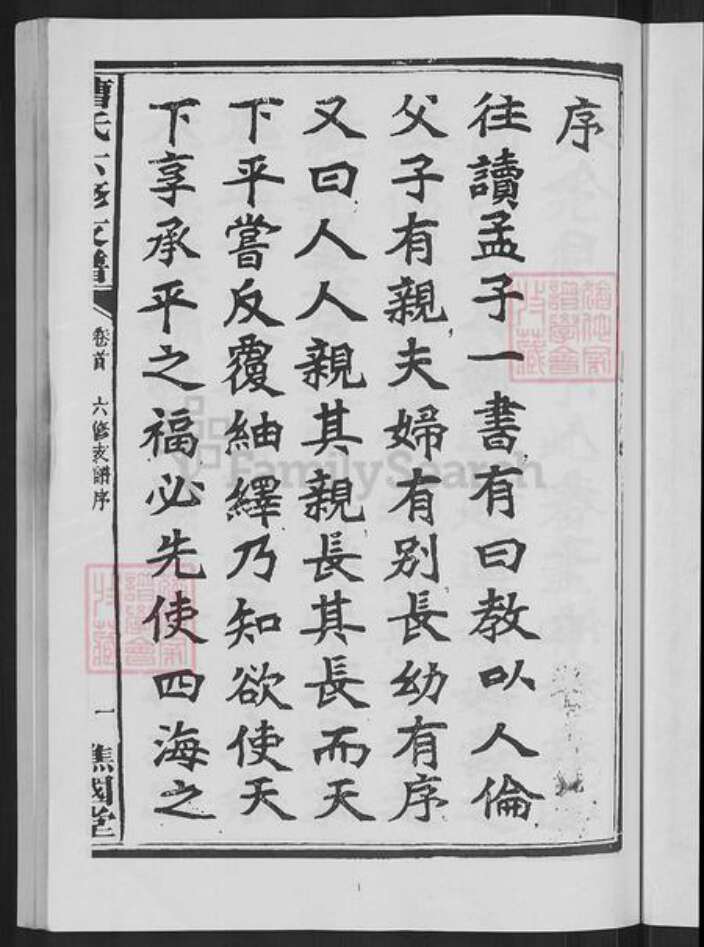 序
往讀孟子一書有曰教以人倫
父子有親夫婦有別長幼有序
又曰人人親其親長其長而天
下平嘗反覆紬繹乃知欲使天
下享承平之福必先使四海之
曹氏六修支譜
卷首 六修支譜序
一
譙國堂
FamilySearch
1